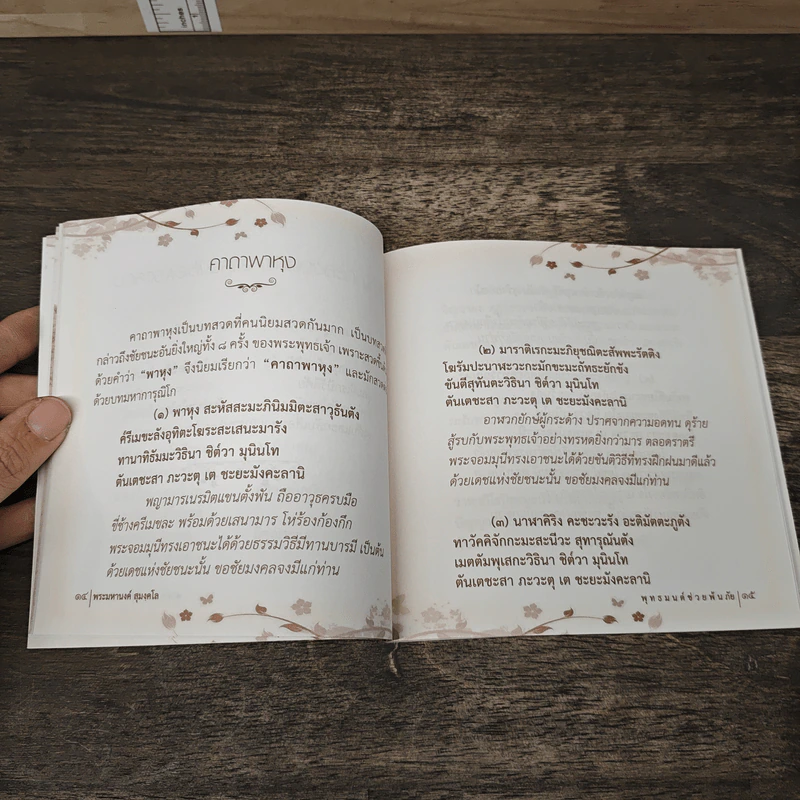 inches
คาถาพาหุง
คาถาพาหุงเป็นบทสวดที่คนนิยมสวดกันมาก เป็นบทสวด
กล่าวถึงชัยชนะอันยิ่งใหญ่ทั้ง ๘ ครั้ง ของพระพุทธเจ้า เพราะสวดขึ้นต้น
ด้วยคำว่า “พาหุง” จึงนิยมเรียกว่า “คาถาพาหุง” และมักสวด
ด้วยบทมหาการุณิโก
(๑) พาหุง สะหัสสะมะภินิมมิตะสาวุธันตัง
ครีเมขะลังอุทิตะโฆระสะเสนะมารัง
ทานาทิธัมมะวิธินา ชิต๎วา มุนินโท
ตันเตชะสา ภะวะตุ เต ชะยะมังคะลานิ
พญามารเนรมิตแขนตั้งพัน ถืออาวุธครบมือ
ขี่ช้างครีเมขละ พร้อมด้วยเสนามาร โห่ร้องก้องกึก
พระจอมมุนีทรงเอาชนะได้ด้วยธรรมวิธีมีทานบารมี เป็นต้น
ด้วยเดชแห่งชัยชนะนั้น ขอชัยมงคลจงมีแก่ท่าน
๑๔ | พระมหานงค์ สุมงคโล
(๒) มาราติเรกะมะภิยุชฌิตะสัพพะรัตติง
โฆรัมปะนาฬะวะกะมักขะมะถัทธะยักขัง
ขันตีสุทันตะวิธินา ชิต๎วา มุนินโท
ตันเตชะสา ภะวะตุ เต ชะยะมังคะลานิ
อาฬวกยักษ์ผู้กระด้าง ปราศจากความอดทน ดุร้าย
สู้รบกับพระพุทธเจ้าอย่างทรหดยิ่งกว่ามาร ตลอดราตรี
พระจอมมุนีทรงเอาชนะได้ด้วยขันติวิธีที่ทรงฝึกฝนมาดีแล้ว
ด้วยเดชแห่งชัยชนะนั้น ขอชัยมงคลจงมีแก่ท่าน
(๓) นาฬาคิริง คะชะวะรัง อะติมัตตะภูตัง
ทาวัคคิจักกะมะสะนีวะ สุทารุณันตัง
เมตตัมพุเสกะวิธินา ชิต๎วา มุนินโท
ตันเตชะสา ภะวะตุ เต ชะยะมังคะลานิ
พุทธมนต์ช่วยพ้นภัย | ๑๕